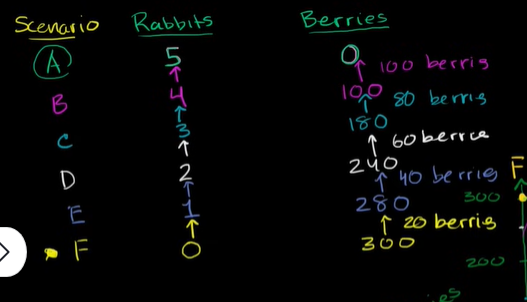 Scenario Rabbits Berries
A 5 0
100 berris
B 4 100
80 berris
C 3 180
60 berrice
D 2 240
40 berries F
E 1 280 300
20 berries
F 0 300
200
ies